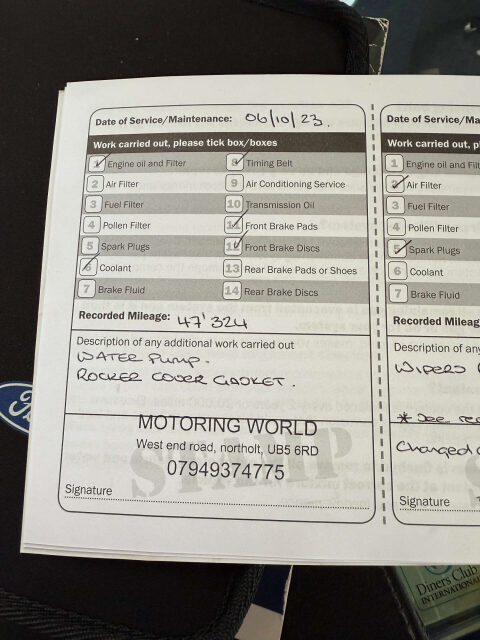 Date of Service/Maintenance: 06/10/23.
Work carried out, please tick box/boxes
1 Engine oil and Filter
2 Air Filter
3 Fuel Filter
4 Pollen Filter
5 Spark Plugs
6 Coolant
7 Brake Fluid
8 Timing Belt
9 Air Conditioning Service
10 Transmission Oil
11 Front Brake Pads
12 Front Brake Discs
13 Rear Brake Pads or Shoes
14 Rear Brake Discs
Recorded Mileage: 47'324
Description of any additional work carried out
WATER PUMP.
ROCKER COVER GASKET.
STAMP
MOTORING WORLD
West end road, northolt, UB5 6RD
07949374775
Signature
Date of Service/Ma
Work carried out, p
1 Engine oil and Filt
2 Air Filter
3 Fuel Filter
4 Pollen Filter
5 Spark Plugs
6 Coolant
7 Brake Fluid
Recorded Mileag
Description of any
WIPERS
* See rec
Changed
Signature
Diners Club
INTERNATIONAL